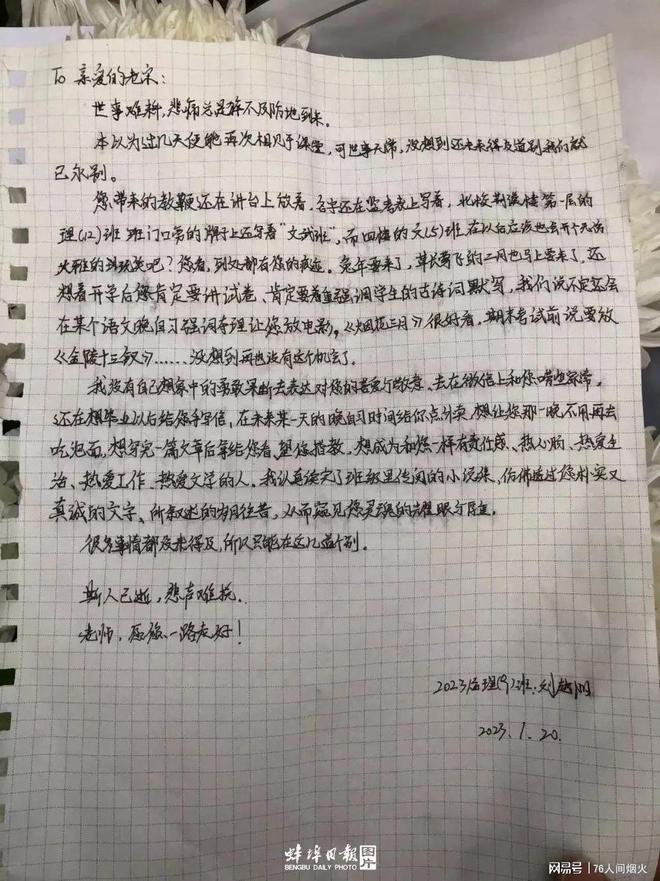 To 亲爱的老宋：
世事难料，悲痛总是猝不及防地到来。
本以为过几天便能再次相见于课堂，可世事无常，没想到还未来得及道别我们就
已永别。
您带来的教鞭还在讲台上放着，名字还在监考表上写着，北校勤读楼第一层的
理(12)班班门口旁的牌子上还写着“文武班”，而四楼的文(5)班在以后应该也会开个无伤
大雅的玩笑吧？您看，到处都有您的痕迹。兔年要来了，草长莺飞的二月也马上要来了，还
想着开学后您肯定要讲试卷、肯定要着重强调守生的古诗词默写，我们说不定还会
在某个语文晚自习强词夺理让您放电影。《烟花三月》很好看，期末考试前说要放
《金陵十三钗》……没想到再也没有这个机会了。
我没有自己想象中的勇敢果断去表达对您的喜爱与敬意、去在微信上和您唠嗑家常，
还在想毕业以后给您手写信，在未来某一天的晚自习时间给您点外卖，想让您那一晚不用再去
吃泡面，想写完一篇文章后寄给您看，望您指教，想成为和您一样有责任感、热心肠、热爱生
活、热爱工作、热爱文学的人。我认真读完了班级里传阅的小说集，仿佛透过您朴实又
真诚的文字、所叙述的岁月往昔，从而窥见您灵魂的耀眼与
很多事情都没来得及，所以只能在这儿道个别。
斯人已逝，悲声难挽。
老师，愿您一路走好！
2023届理(9)班：刘
2023.1.20.
蚌埠日报 图片
BENGBU DAILY PHOTO
网易号|76人间烟火